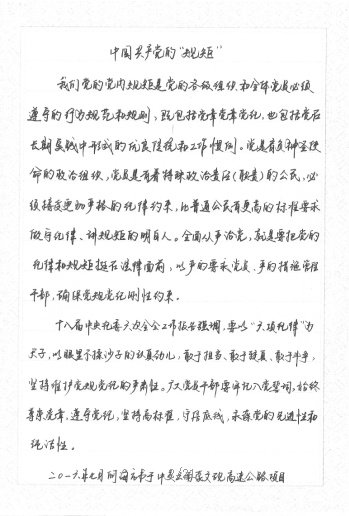 中国共产党的“规矩”
我们党的党内规矩是党的各级组织和全体党员必须
遵守的行为规范和规则，既包括党章党章党纪，也包括党在
长期实践中形成的优良传统和工作惯例。党是肩负神圣使
命的政治组织，党员是有着特殊政治责任（职责）的公民，必
须接受更加严格的纪律约束，比普通公民有更高的标准要求
做守纪律、讲规矩的明白人。全面从严治党，就是要把党的
纪律和规矩挺在法律面前，以严的要求党员、严的措施管理
干部，确保党规党纪刚性约束。
十八届中央纪委六次全会工作报告强调，要以“六项纪律”为
尺子，以眼里不揉沙子的认真劲儿，敢于担当、敢于较真、敢于斗争，
坚持维护党规党纪的严肃性。广大党员干部要牢记入党誓词，始终
尊崇党章，遵守党纪，坚持高标准，守住底线，永葆党的先进性和
纯洁性。
二〇一六年七月
高速公路项目